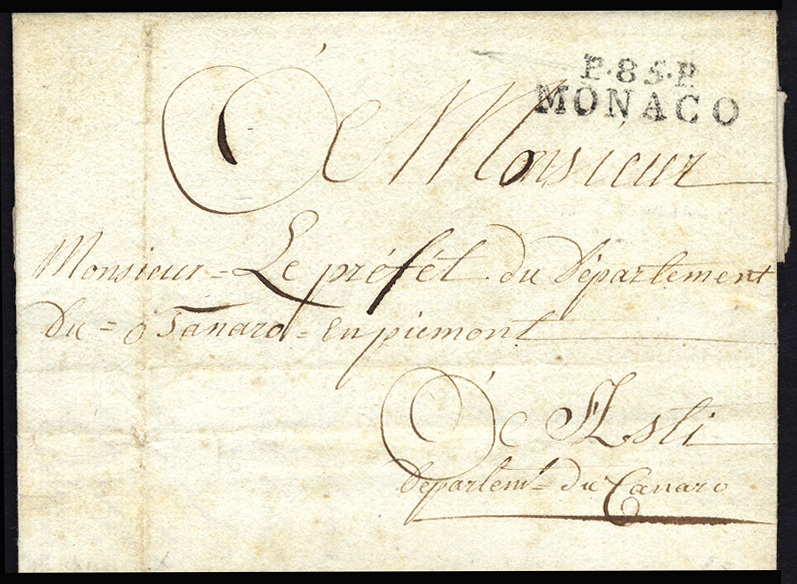 P.85.P.
MONACO
De Monsieur
Monsieur = Le préfét du Département
Du = Tanaro = En piemont
De Asti
Départem.t du Tanaro